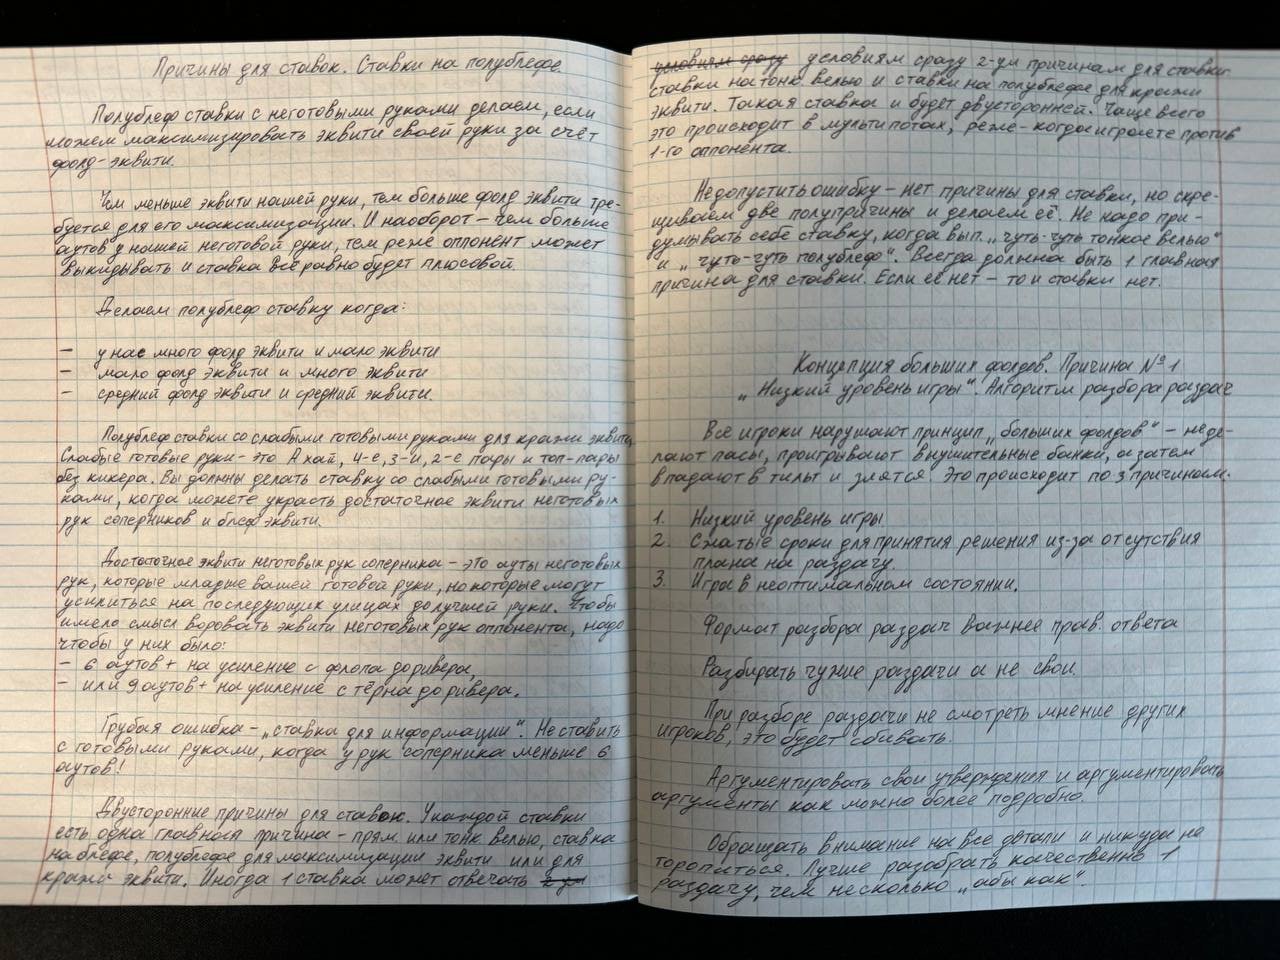 Причины для ставок. Ставки на полублефе.
Полублеф ставки с неготовыми руками делаем, если
можем максимизировать эквити своей руки за счёт
фолд-эквити.
Чем меньше эквити нашей руки, тем больше фолд эквити тре-
буется для его максимизации. И наоборот – чем больше
аутов у нашей неготовой руки, тем реже оппонент может
выкидывать и ставка всё равно будет плюсовой.
Делаем полублеф ставку когда:
– у нас много фолд эквити и мало эквити
– мало фолд эквити и много эквити
– средний фолд эквити и средний эквити.
Полублеф ставки со слабыми готовыми руками для кражи эквити
Слабые готовые руки – это А хай, 4-е, 3-и, 2-е пары и топ-пары
без кикера. Вы должны делать ставку со слабыми готовыми ру-
ками, когда можете украсть достаточное эквити неготовых
рук соперников и блеф эквити.
Достаточное эквити неготовых рук соперника – это ауты неготовых
рук, которые младше вашей готовой руки, но которые могут
усилиться на последующих улицах до лучшей руки. Чтобы
имело смысл воровать эквити неготовых рук оппонента, надо
чтобы у них было:
– 6 аутов+ на усиление с флопа до ривера,
– или 9 аутов+ на усиление с тёрна до ривера.
Грубая ошибка – „ставка для информации“. Не ставить
с готовыми руками, когда у рук соперника меньше 6
аутов!
Двусторонние причины для ставок. У каждой ставки
есть одна главная причина – прям. или тонк велью, ставка
на блефе, полублефе для максимизации эквити или для
кражи эквити. Иногда 1 ставка может отвечать 2 ум
условиям сразу условиям сразу 2-ум причинам для ставки
ставки на тонк. велью и ставки на полублефе для кражи
эквити. Такая ставка и будет двусторонней. Чаще всего
это происходит в мультипотах, реже – когда играете против
1-го оппонента.
Недопустить ошибку – нет причины для ставки, но скре-
щиваем две полупричины и делаем её. Не надо при-
думывать себе ставку, когда вып. „чуть-чуть тонкое велью“
и „чуть-чуть полублеф“. Всегда должна быть 1 главная
причина для ставки. Если её нет – то и ставки нет.
Концепция больших фолдов. Причина №1
„Низкий уровень игры“. Алгоритм разбора раздач
Все игроки нарушают принцип „больших фолдов“ – не де-
лают пасы, проигрывают внушительные банки, а затем
впадают в тильт и злятся. Это происходит по 3 причинам.
1. Низкий уровень игры
2. Сжатые сроки для принятия решения из-за отсутствия
плана на раздачу.
3. Игра в неоптимальном состоянии.
Формат разбора раздач важнее прав. ответа
Разбирать чужие раздачи а не свои.
При разборе раздачи не смотреть мнение других
игроков, это будет сбивать.
Аргументировать свои утверждения и аргументировать
аргументы как можно более подробно.
Обращать внимание на все детали и никуда не
торопиться. Лучше разобрать качественно 1
раздачу, чем несколько „абы как“.